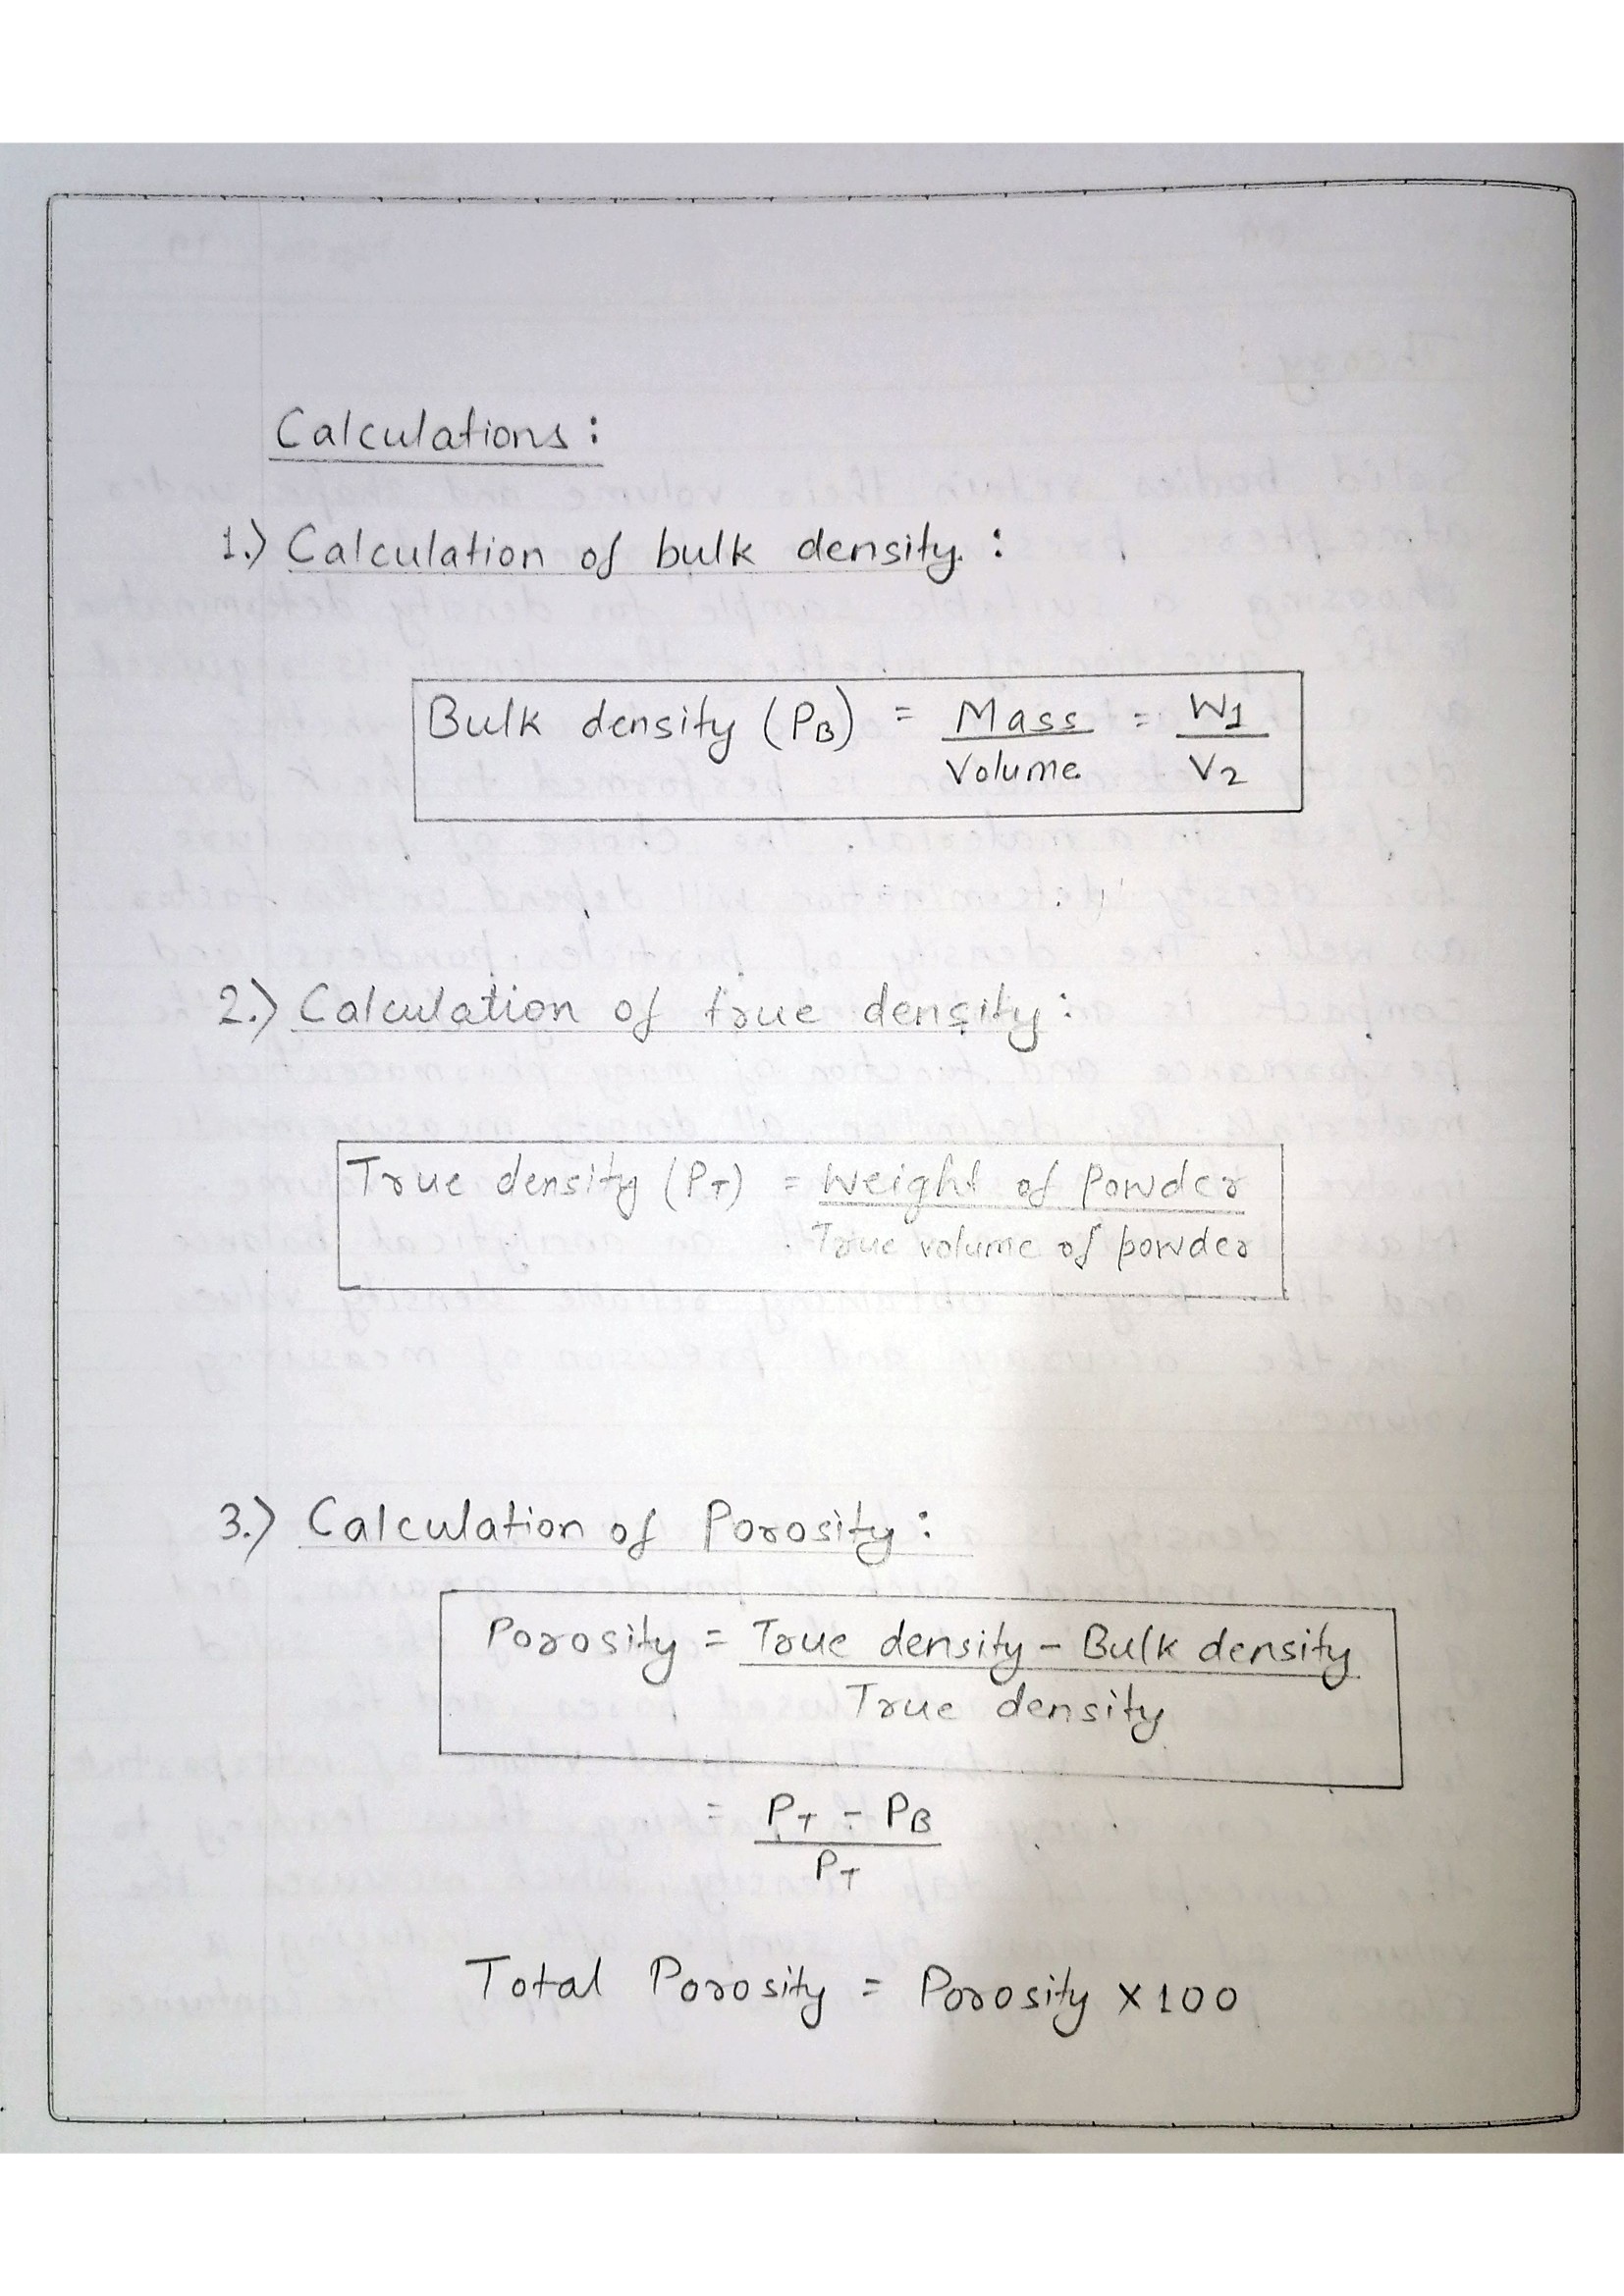 Calculations :
1.) Calculation of bulk density :
Bulk density (PB) = Mass / Volume = W1 / V2
2.) Calculation of true density :
True density (PT) = Weight of Powder / True volume of powder
3.) Calculation of Porosity :
Porosity = True density - Bulk density / True density
= PT - PB / PT
Total Porosity = Porosity x 100